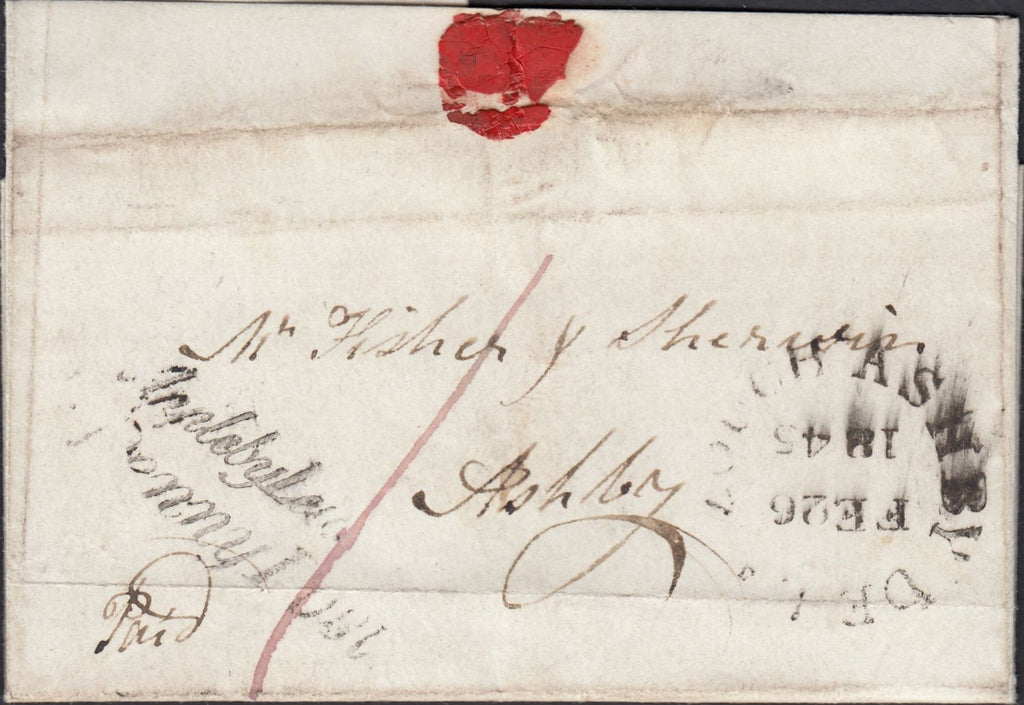 Mr Fisher & Sherwin
Ashby
Paid
Penny Post
ASHBY DE LA ZOUCH
FE26
1845